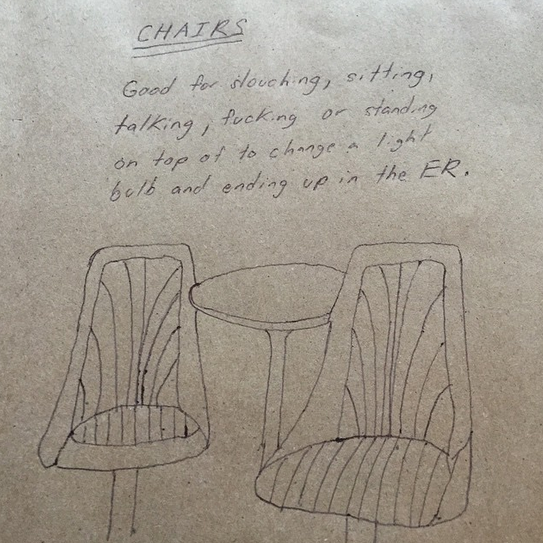 CHAIRS
Good for slouching, sitting,
talking, fucking or standing
on top of to change a light
bulb and ending up in the ER.